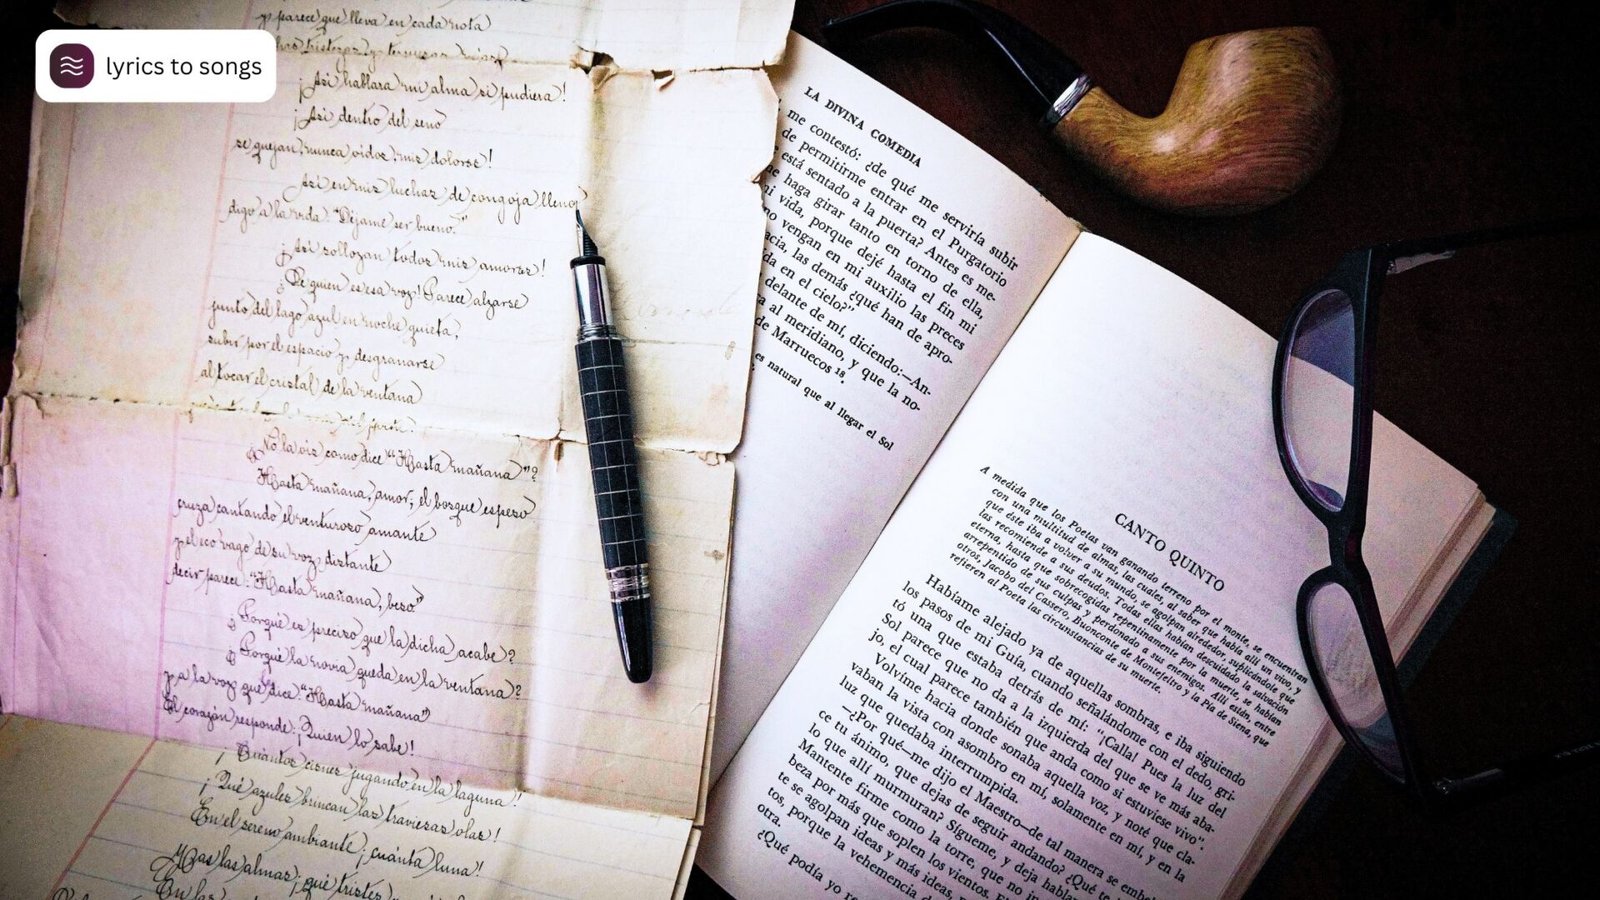 lyrics to songs
y parece que lleva en cada nota
¡Así hablara mi alma si pudiera!
¡Así dentro del seno
se quejan, nunca oídos, mis dolores!
Así en mis luchas, de congoja lleno,
digo a la vida: "Déjame ser bueno."
¡Así sollozan todos mis amores!
¿De quién es esa voz? Parece alzarse
junto del lago azul en noche quieta,
subir por el espacio y desgranarse
al tocar el cristal de la ventana
¿No la vis como dice "Hasta mañana"?
Hasta mañana, amor; el bosque espeso
cruza cantando el venturoso amante
y el eco vago de su voz distante
decir parece: "Hasta mañana, beso"
¿Porqué es preciso que la dicha acabe?
¿Porqué la novia queda en la ventana?
y a la voz que dice "Hasta mañana"
El corazón responde: ¡Quien lo sabe!
¡Cuántos cisnes jugando en la laguna!
¡Qué azules brincan las traviesas olas!
En el sereno ambiente ¡cuánta luna!
Mas las almas ¡qué tristes
LA DIVINA COMEDIA
me contestó: ¿de qué me serviría subir
de permitirme entrar en el Purgatorio
está sentado a la puerta? Antes es me-
me haga girar tanto en torno de ella,
vida, porque dejé hasta el fin mi
no vengan en mi auxilio las preces
las demás ¿qué han de apro-
en el cielo?"
delante de mí, diciendo:—An-
al meridiano, y que la no-
de Marruecos 18.
es natural que al llegar el Sol
CANTO QUINTO
A medida que los Poetas van ganando terreno por el monte, se encuentran
con una multitud de almas, las cuales, al saber que había allí un vivo, y
que éste iba a volver a su mundo, se agolpan alrededor, suplicándole que
las recomiende a sus deudos. Todas ellas habían descuidado la salvación
eterna, hasta que sobrecogidas repentinamente por la muerte, se habían
arrepentido de sus culpas y perdonado a sus enemigos. Allí están, entre
otros, Jacobo del Cassero, Buonconte de Montefeltro y la Pía de Siena, que
refieren al Poeta las circunstancias de su muerte.
Habíame alejado ya de aquellas sombras, e iba siguiendo
los pasos de mi Guía, cuando señalándome con el dedo, gri-
tó una que estaba detrás de mí: "¡Calla! Pues la luz del
Sol parece que no da a la izquierda del que se ve más aba-
jo, el cual parece también que anda como si estuviese vivo".
Volvíme hacia donde sonaba aquella voz, y noté que cla-
vaban la vista con asombro en mí, solamente en mí, y en la
luz que quedaba interrumpida.
—¿Por qué—me dijo el Maestro—de tal manera se embebe-
ce tu ánimo, que dejas de seguir andando? ¿Qué te
lo que allí murmuran? Sígueme, y deja hablar
Mantente firme como la torre, que no
beza por más que soplen los vientos.
te se agolpan ideas y más ideas,
tos, porque la vehemencia
otra.
¿Qué podía yo